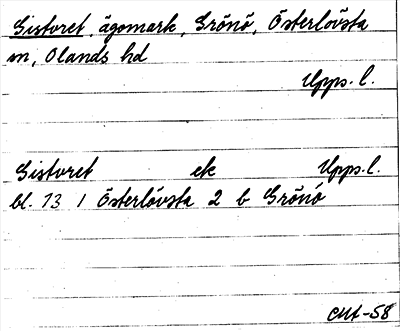 Gistvret, ägomark, Grönö, Österlövsta
sn, Olands hd
Upps. l.
Gistvret ek Upps. l.
bl. 73 1 Österlövsta 2 b Grönö
-58